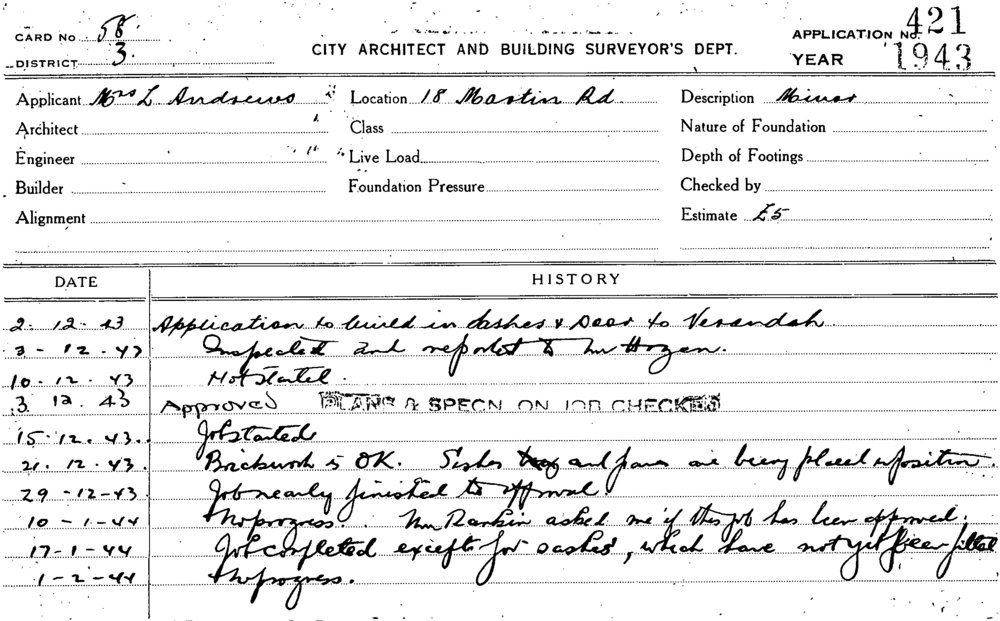 CARD No 58
DISTRICT 3
CITY ARCHITECT AND BUILDING SURVEYOR'S DEPT.
APPLICATION No. 421
YEAR 1943
Applicant Mrs L Andrews Location 18 Martin Rd. Description Minor
Architect Class Nature of Foundation
Engineer Live Load Depth of Footings
Builder Foundation Pressure Checked by
Alignment Estimate £5
DATE HISTORY
2. 12. 43 Application to build in sashes & Door to Verandah.
3 - 12. 43 Inspected and reported to Mr Hogan.
10. 12. 43 Not started.
3 12. 43 Approved PLANS & SPECN ON JOB CHECKED
15. 12. 43. Job started
21. 12. 43. Brickwork is OK. Sashes and frames are being placed in position.
29 - 12 - 43 Job nearly finished to approval.
10 - 1 - 44 No progress. Mr Rankin asked me if this job has been approved.
17 - 1 - 44 Job completed excepts for sashes, which have not yet been fitted
1 - 2 - 44 No progress.